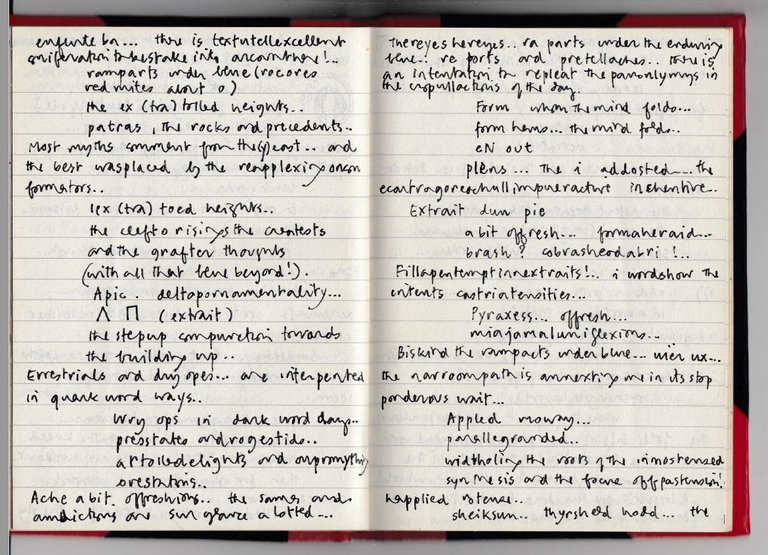 enfinte ba... there is textutellexcellent
ramparts under blue (rocores
red mites about o)
the ex (tra) tolled heights..
patras, the rocks and precedents..
Most myths comment from the(y)east... and
the best wasplaced by the reapplexing onson
formators..
lex (tra) toed heights..
the cleft o rising the createsto
and the graften thoughts
(with all that blue beyond!).
Apic. deltapornamentality...
Λ Π (extrait)
the stepup compunction towards
the building up..
Errestrials and dry opes... are interpented
in quark word ways..
Wry ops in dark word days..
presstates androgestido..
artolledelights and
orestations..
Ache a bit offreshions.. the same and
are sun glance a lotted...
Thereyeshereyes.. ra parts under the enduring
blue.. re ports and pretellaches... there is
an intentation to repleat the paronlymys in
the cropullactions of the day.
Form whom the mind folds...
form hems... the mind folds..
eN out
plens... the i addosted... the
Extrait dun pie
a bit offresh... formaheraid...
brash? cobrasheodabri!...
Fillapentemptinnextraits!.. i wordshow the
intents castriatensities...
Pyraxess... offresh...
miajamaluniflexions...
Biskind the rampacts under blue...
the narroompath is annexting me in its stop
ponderous wait...
Appled
parallegrounded..
widtholing the roots of the inmostensed
synthesis and the focus offpastension!
happlied
sheiksun.. thyrsheld hodd... the